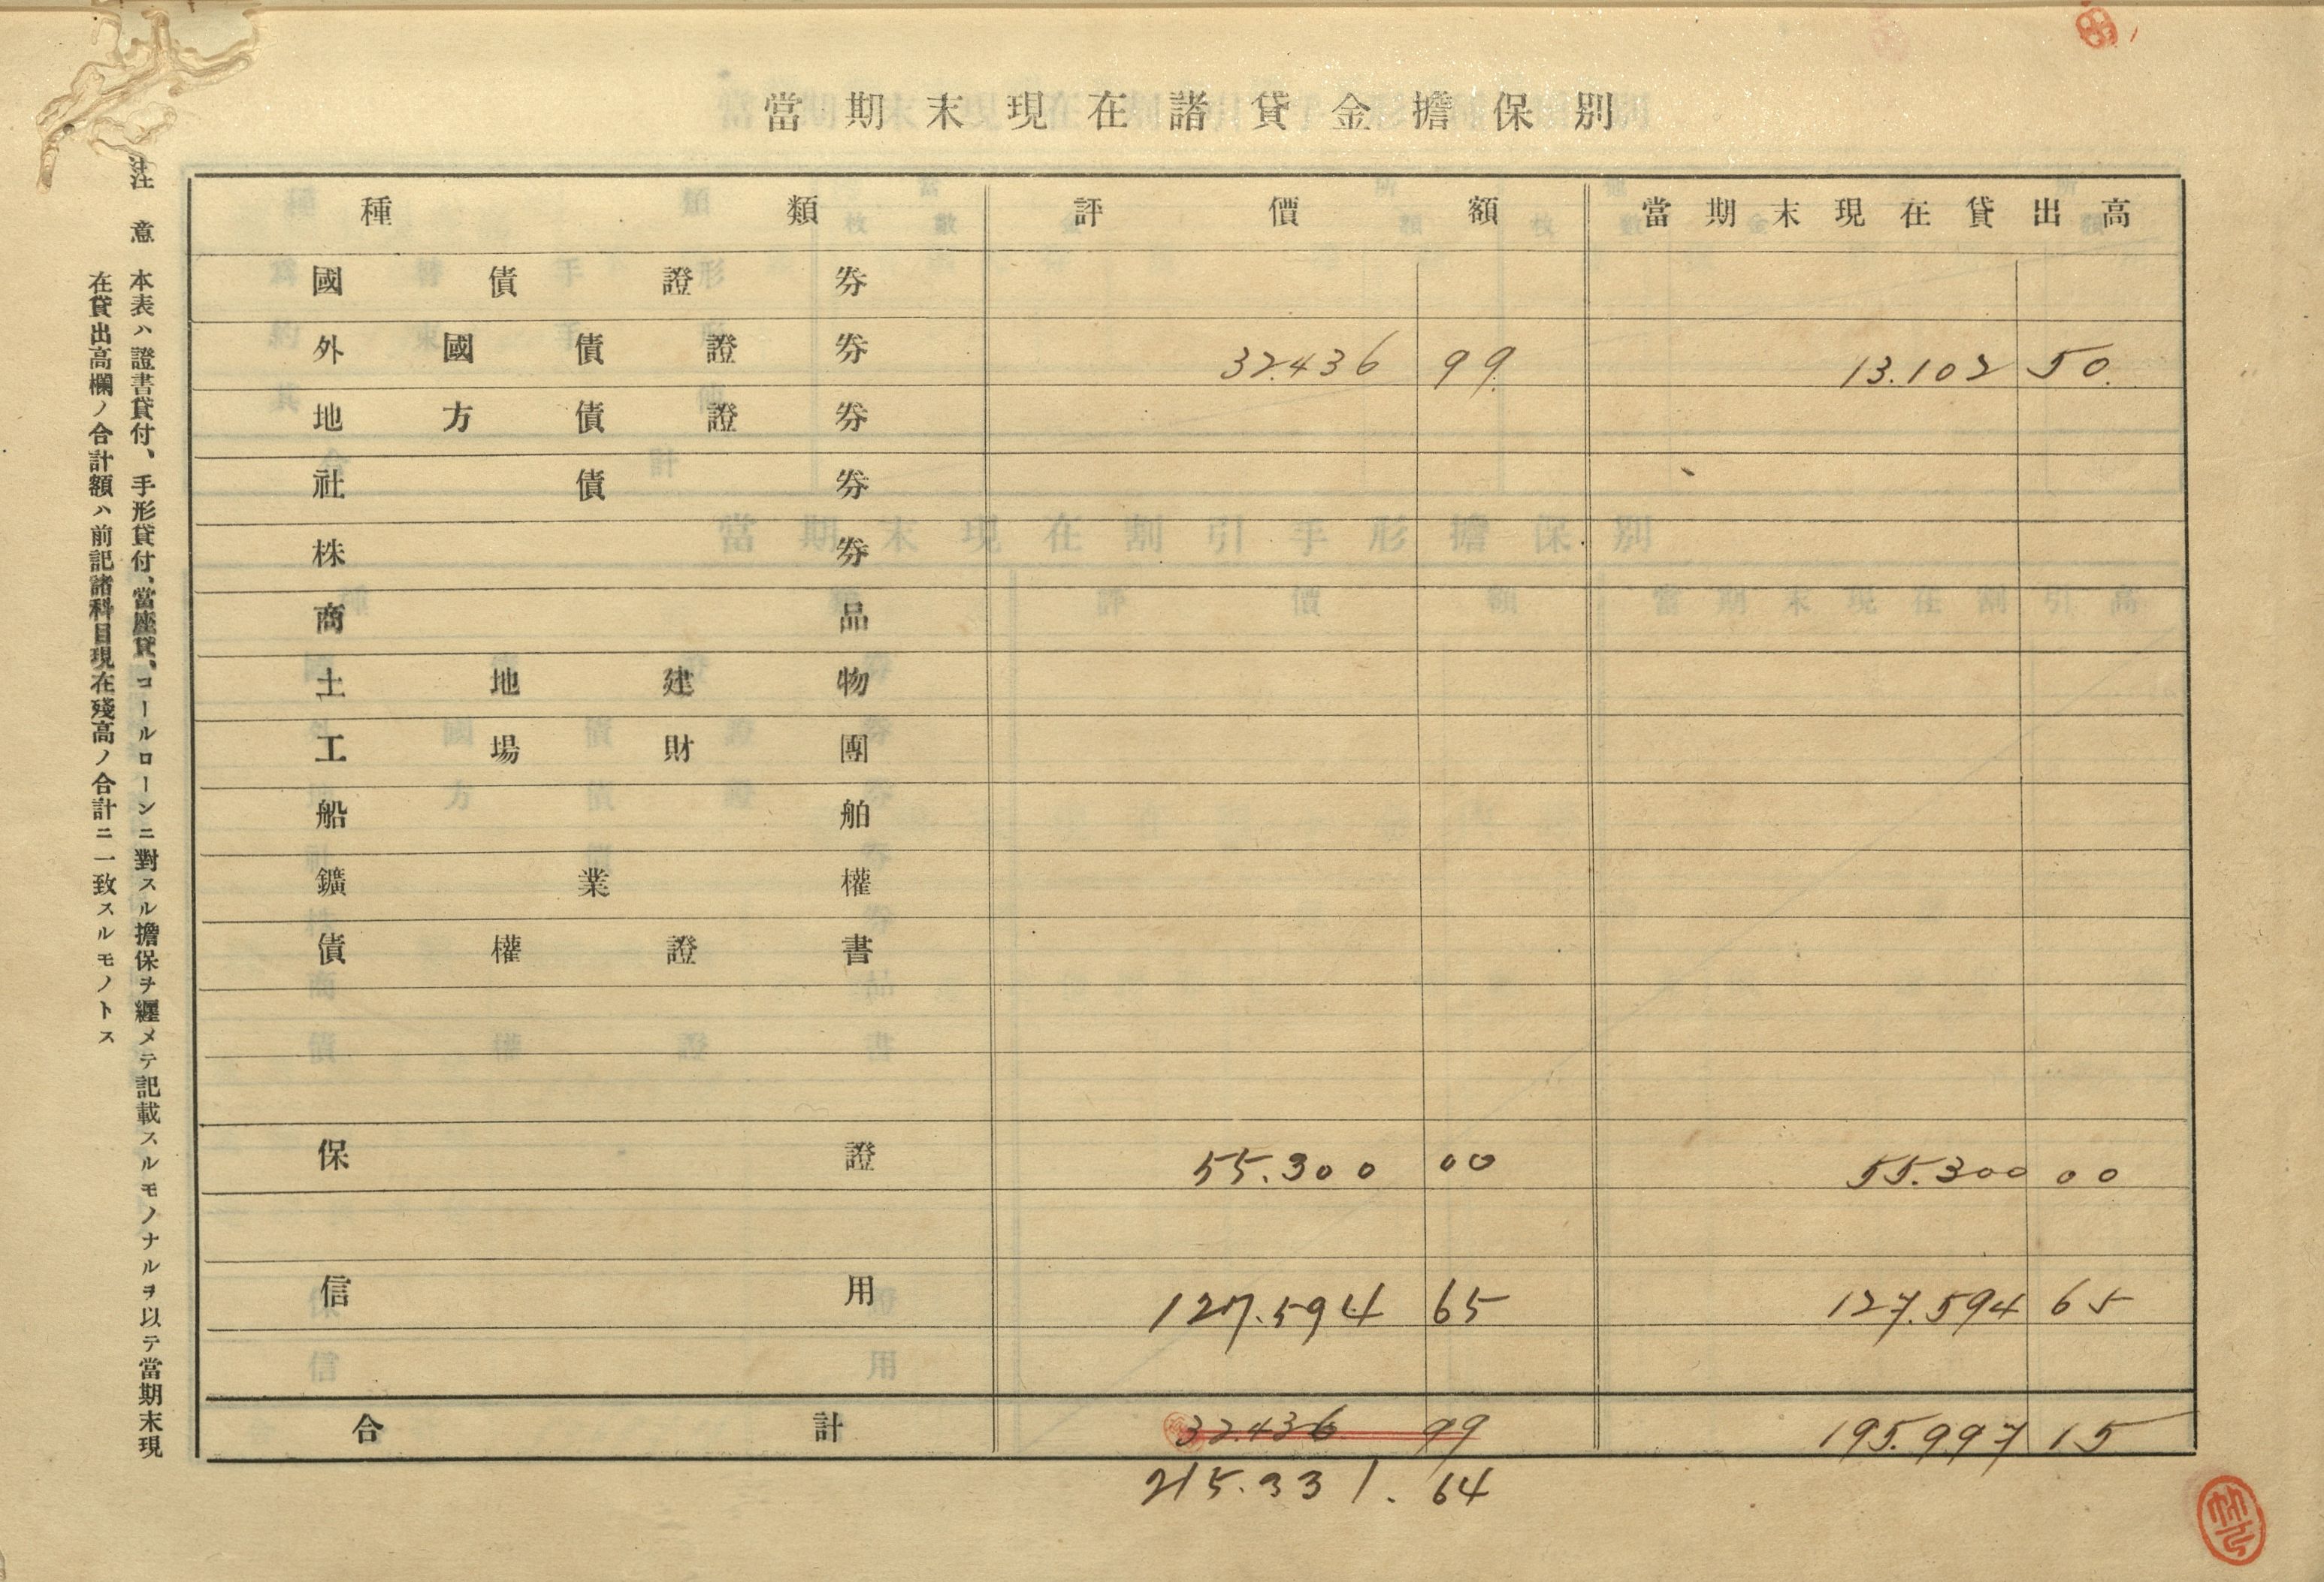 當期末現在諸貸金擔保別
種類 評價額 當期末現在貸出高
國債證券
外國債證券 32.436 99 13.102 50
地方債證券
社債券
株券
商品
土地建物
工場財團
船舶
鑛業權
債權證書
保證 55.300 00 55.300 00
信用 127.594 65 127.594 65
合計 32.436 99 195.997 15
215.331. 64
注意 本表ハ證書貸付、手形貸付、當座貸、コールローンニ對スル擔保ヲ纒メテ記載スルモノナルヲ以テ當期末現
在貸出高欄ノ合計額ハ前記諸科目現在殘高ノ合計ニ一致スルモノトス